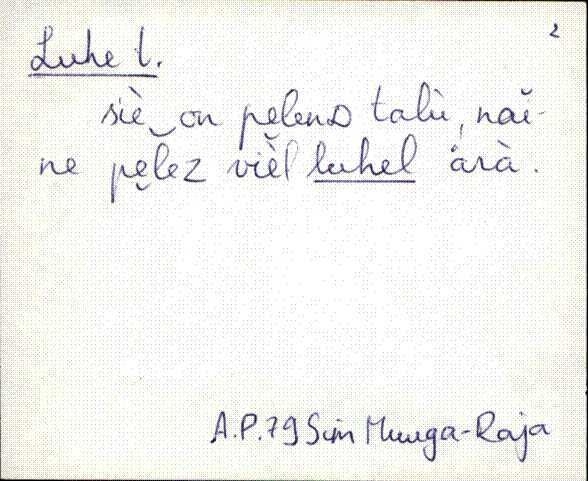 2
Luhe l.
siè‿on pęlenᴅ talù, nai-
ne pęlez vièl luhel ärà.
A.P.79 Sim Munga-Raja